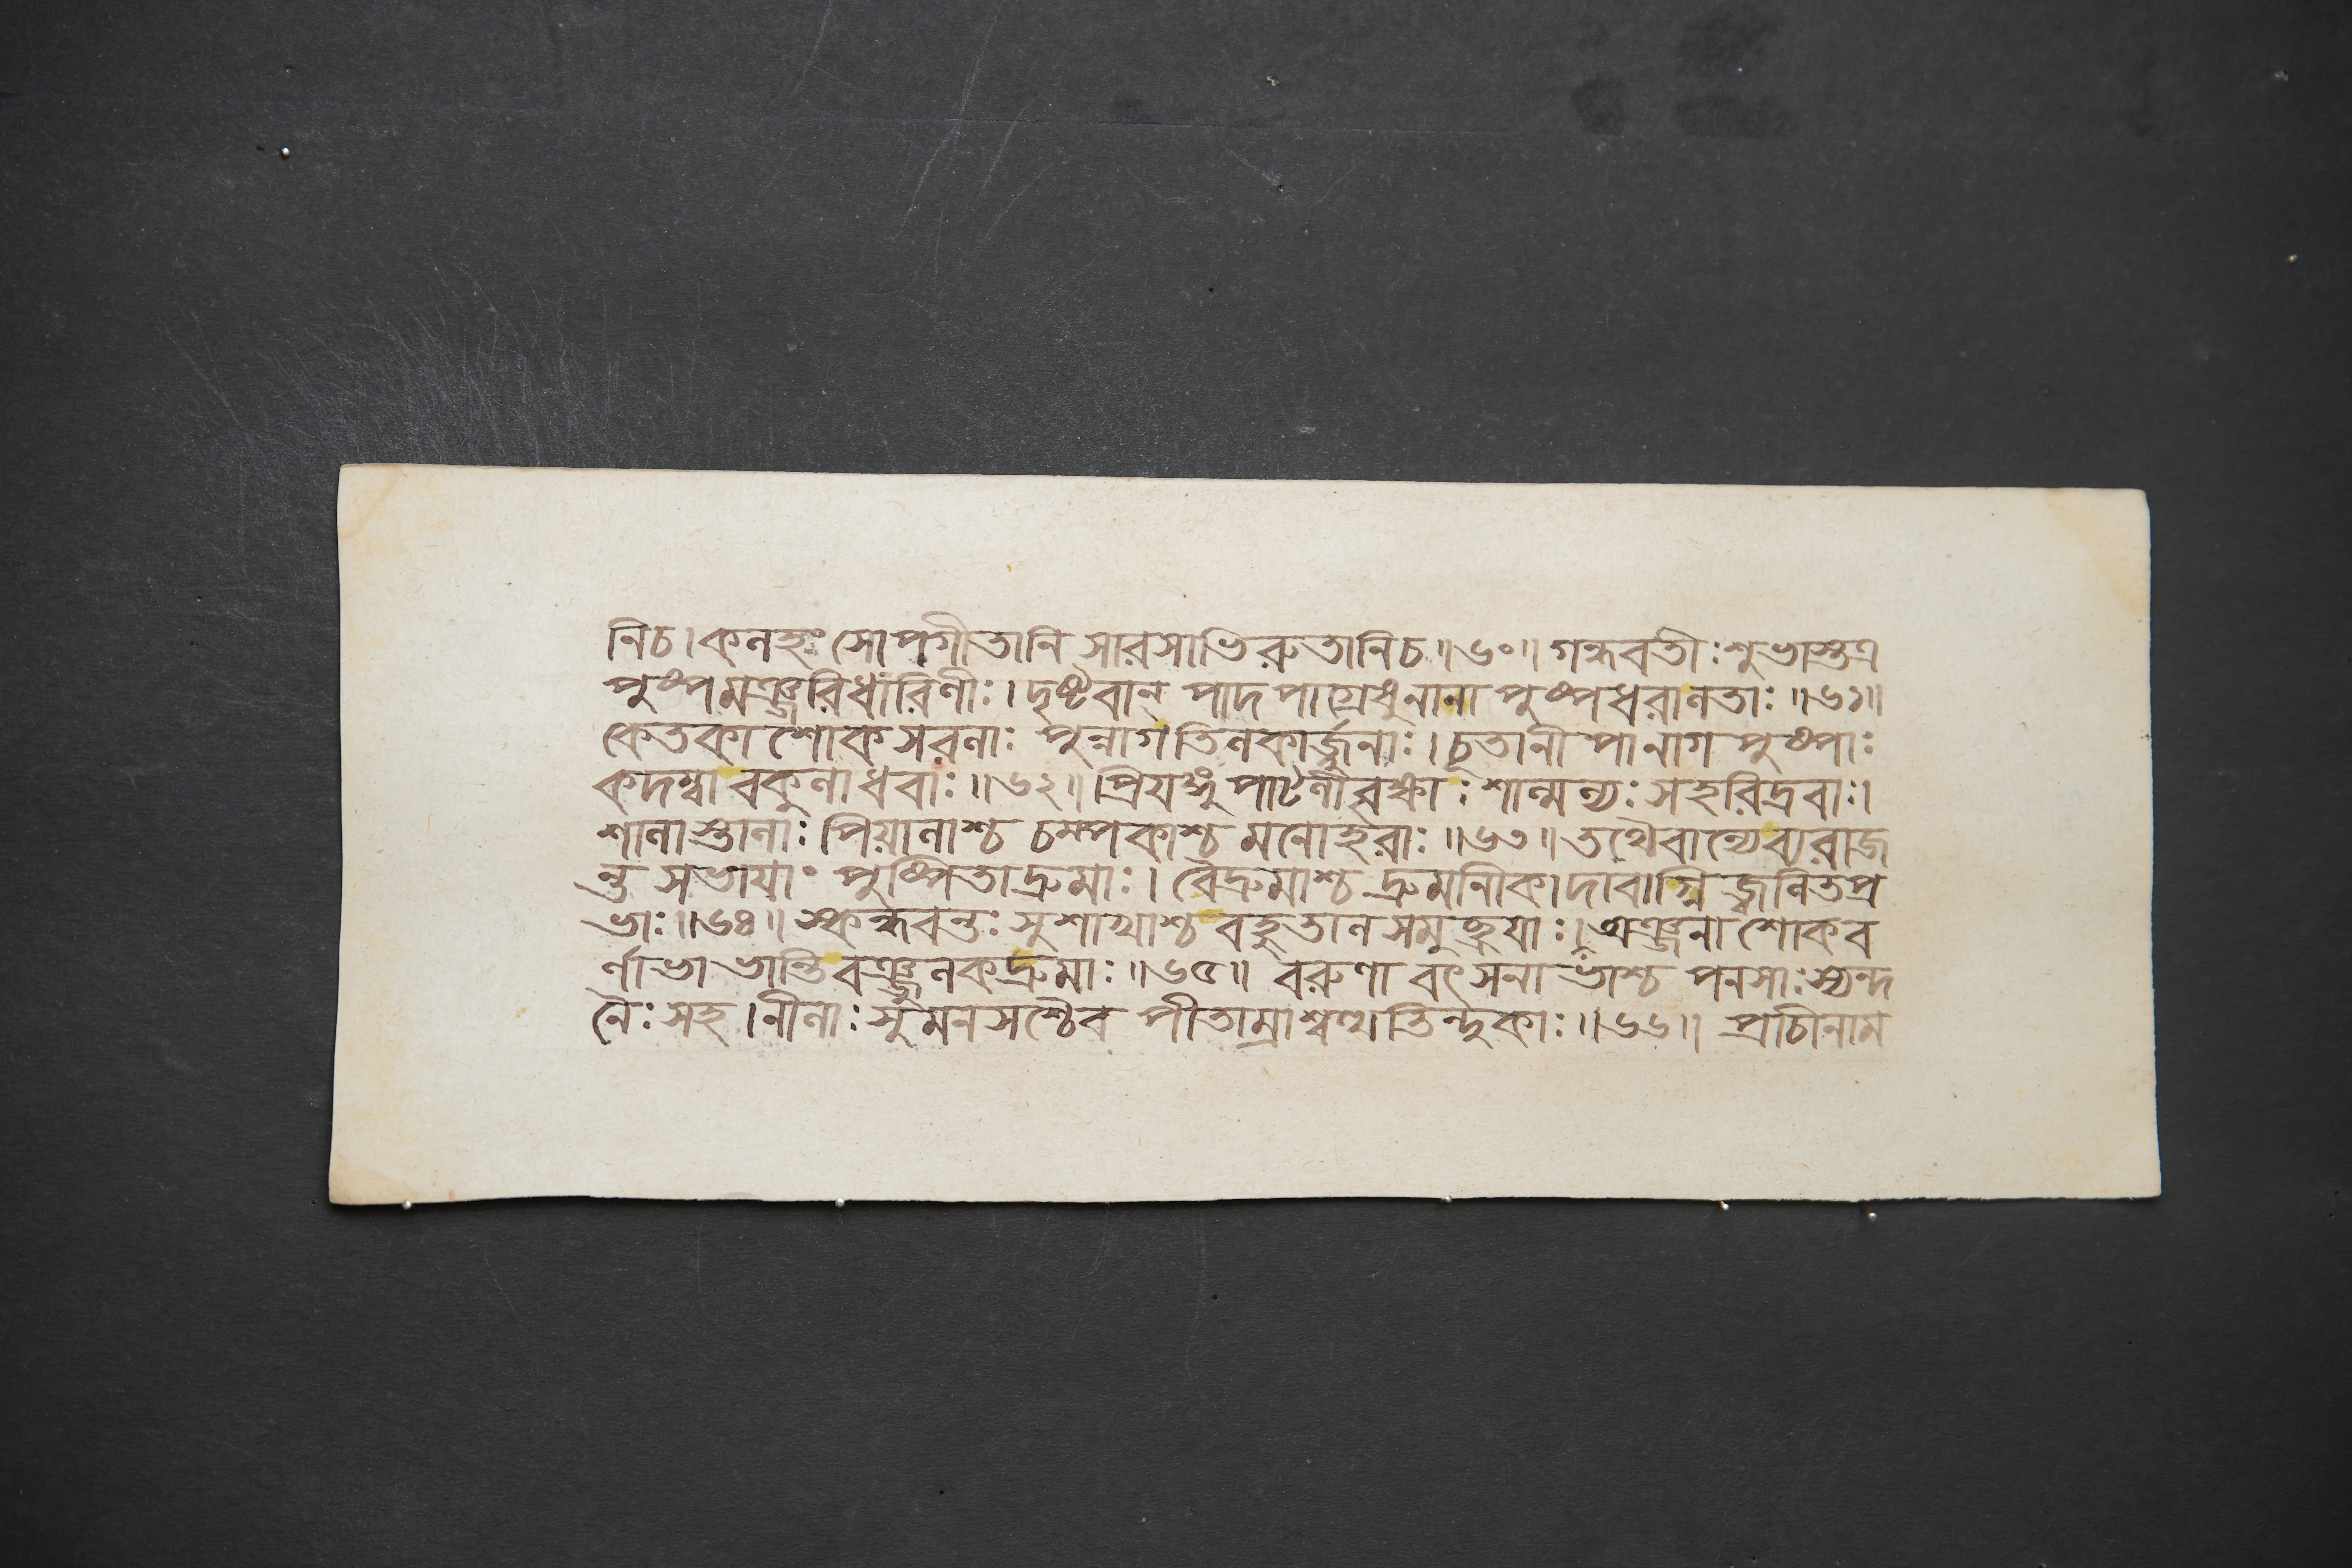 নিচ। কলহংসোপগীতানি সারসাভিরুতানিচ॥৬০॥ গন্ধবতীঃ শুভাস্তত্র
পুষ্পমঞ্জরিধারিণীঃ। দৃষ্টবান্ পাদপাগ্রেষু নানা পুষ্পধরালতাঃ॥৬১॥
কেতকাশোকসরলাঃ পুন্নাগতিলকার্জ্জুনাঃ। চূতানীপানাগপুষ্পাঃ
কদম্বা বকুলাধবাঃ॥৬২॥ প্রিয়ঙ্গুপাটলী শাল্মল্যঃ সহরিদ্রবাঃ।
শালাস্তালাঃ পিয়ালাশ্চ চম্পকাশ্চ মনোহরাঃ॥৬৩॥ তথৈবান্যেব্যরাজ
ন্ত সভায়াং পুষ্পিতাদ্রুমাঃ। বৈদ্রুমাশ্চ দ্রুমানীকাদাবাগ্নিজ্বলিতপ্র
ভাঃ॥৬৪॥ স্কন্ধবন্তঃ সুশাখাশ্চ বহুতালসমুচ্ছ্রয়াঃ। অঞ্জনাশোকব
র্ণাভা ভান্তি বঞ্জুলকদ্রুমাঃ॥৬৫॥ বরুণা বৎসনাভাশ্চ পনসাঃ স্যন্দ
নৈঃ সহ। নীলাঃ সুমনসশ্চৈব পীতাম্রাশ্বত্থতিন্দুকাঃ॥৬৬॥ প্রাচীনাম